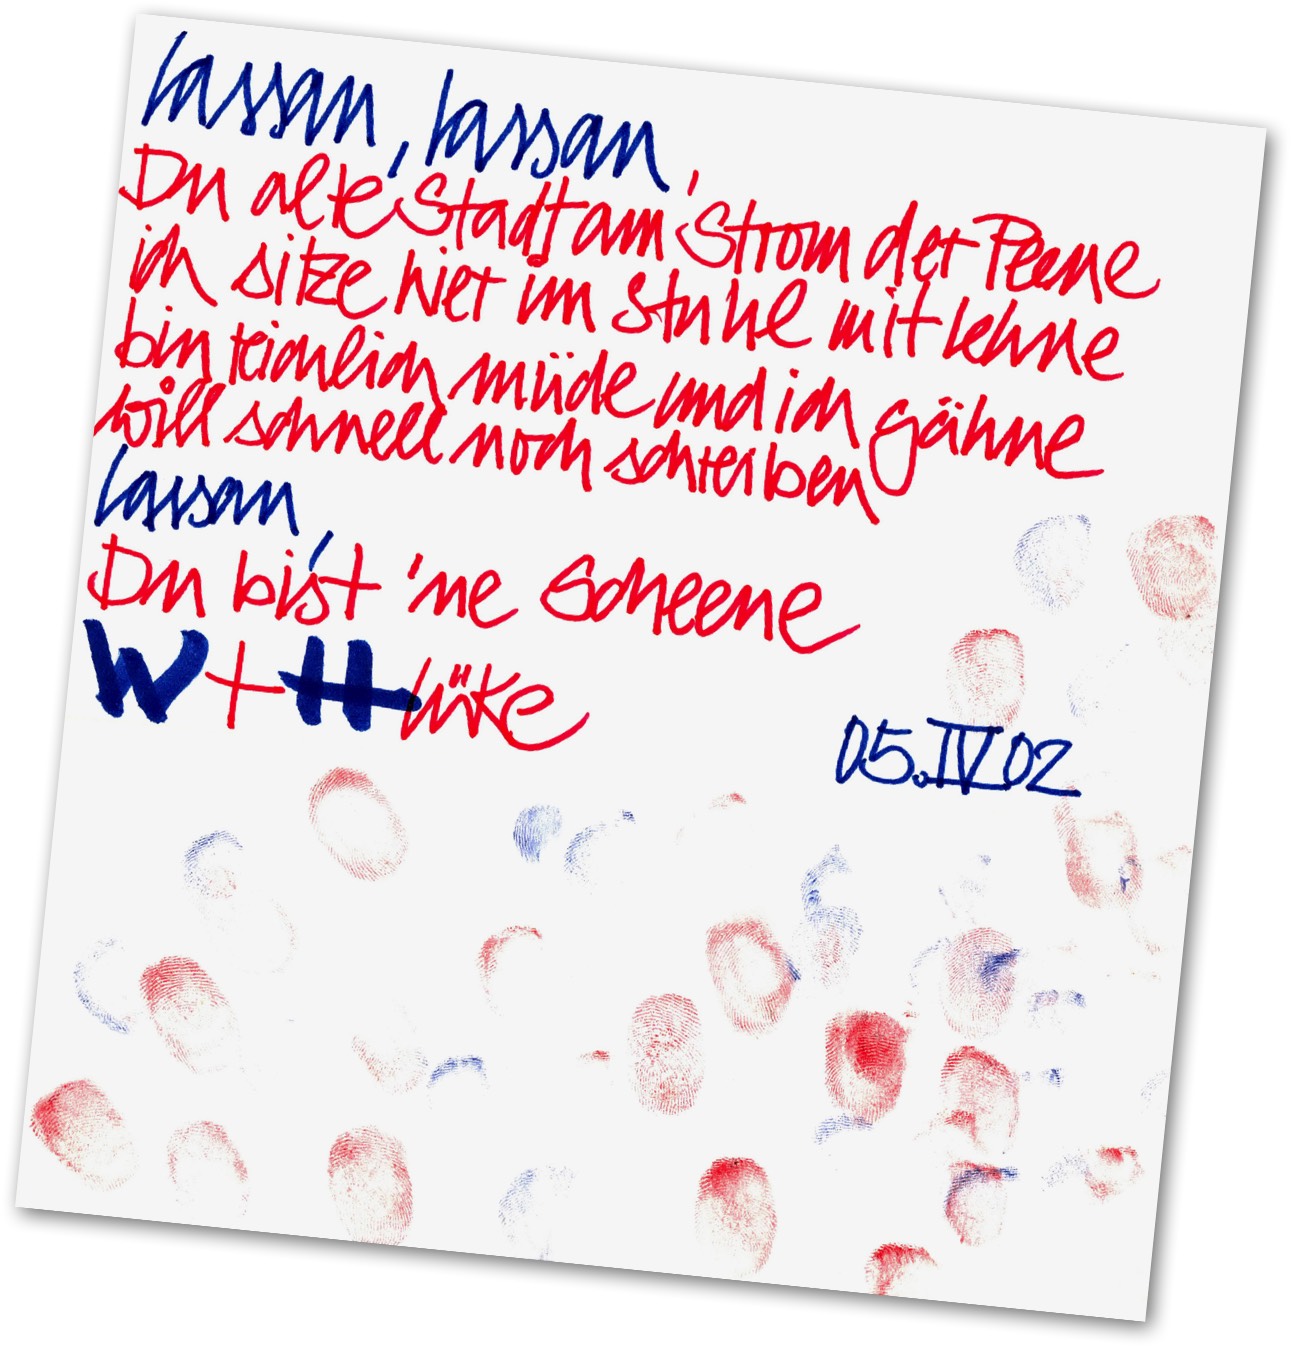 Lassan, Lassan,
Du alte Stadt am Strom der Peene
ich sitze hier im Stuhl mit Lehne
bin reichlich müde und ich gähne
will schnell noch schreiben
Lassan,
Du bist 'ne Scheene
W+H Lüke
05.IV 02